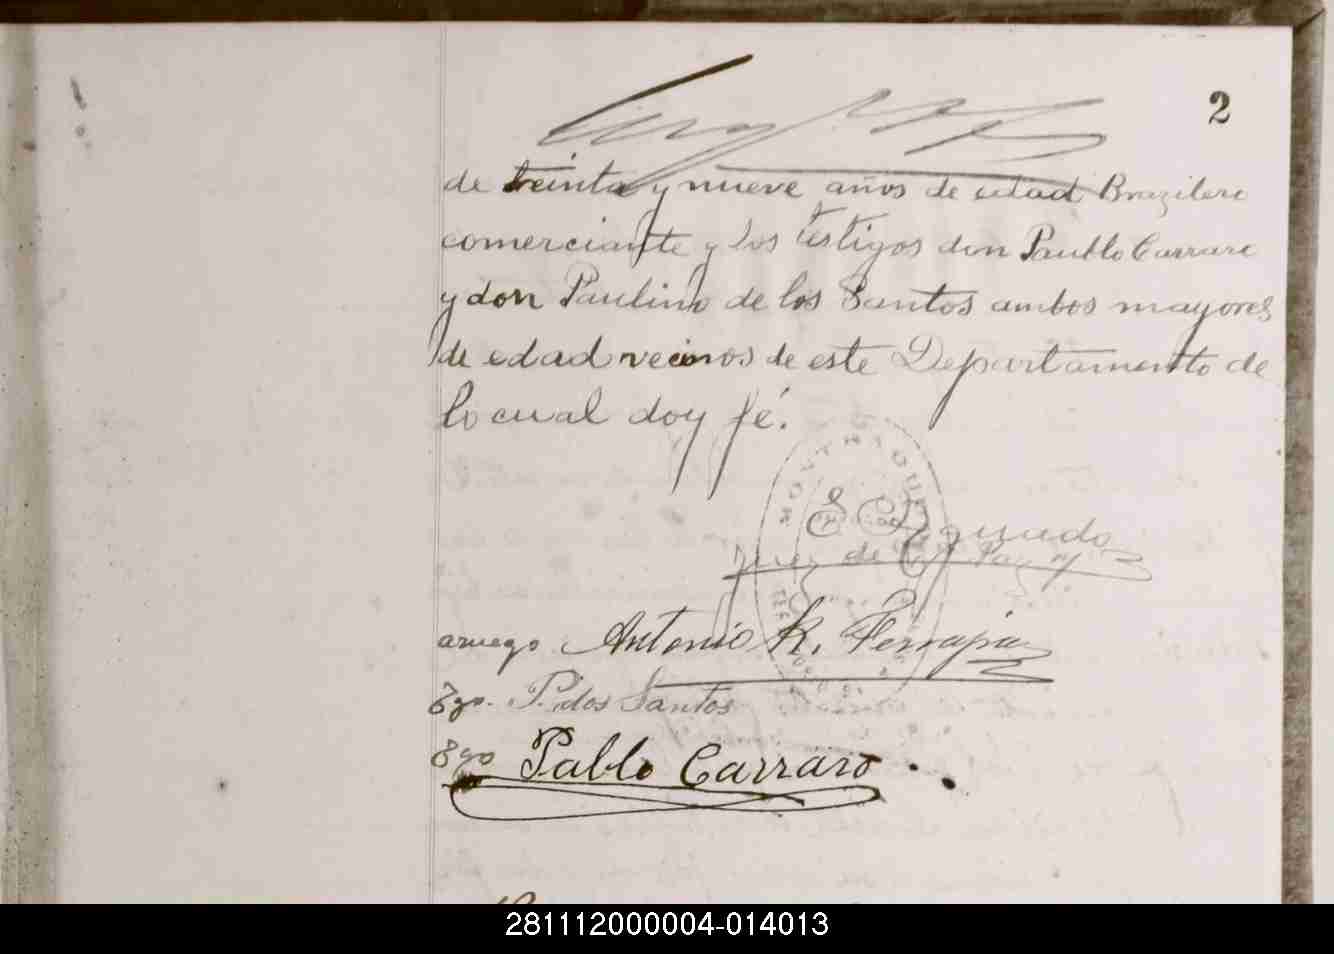 2
de treinta y nueve años de edad Brazilero
comerciante y los testigos don Paublo Carraro
y don Paulino de los Santos ambos mayores
de edad vecinos de este Departamento de
lo cual doy fé.
Juez de Paz
aruego Antonio R.
Tgo. P. dos Santos
Tgo Pablo Carraro
281112000004-014013